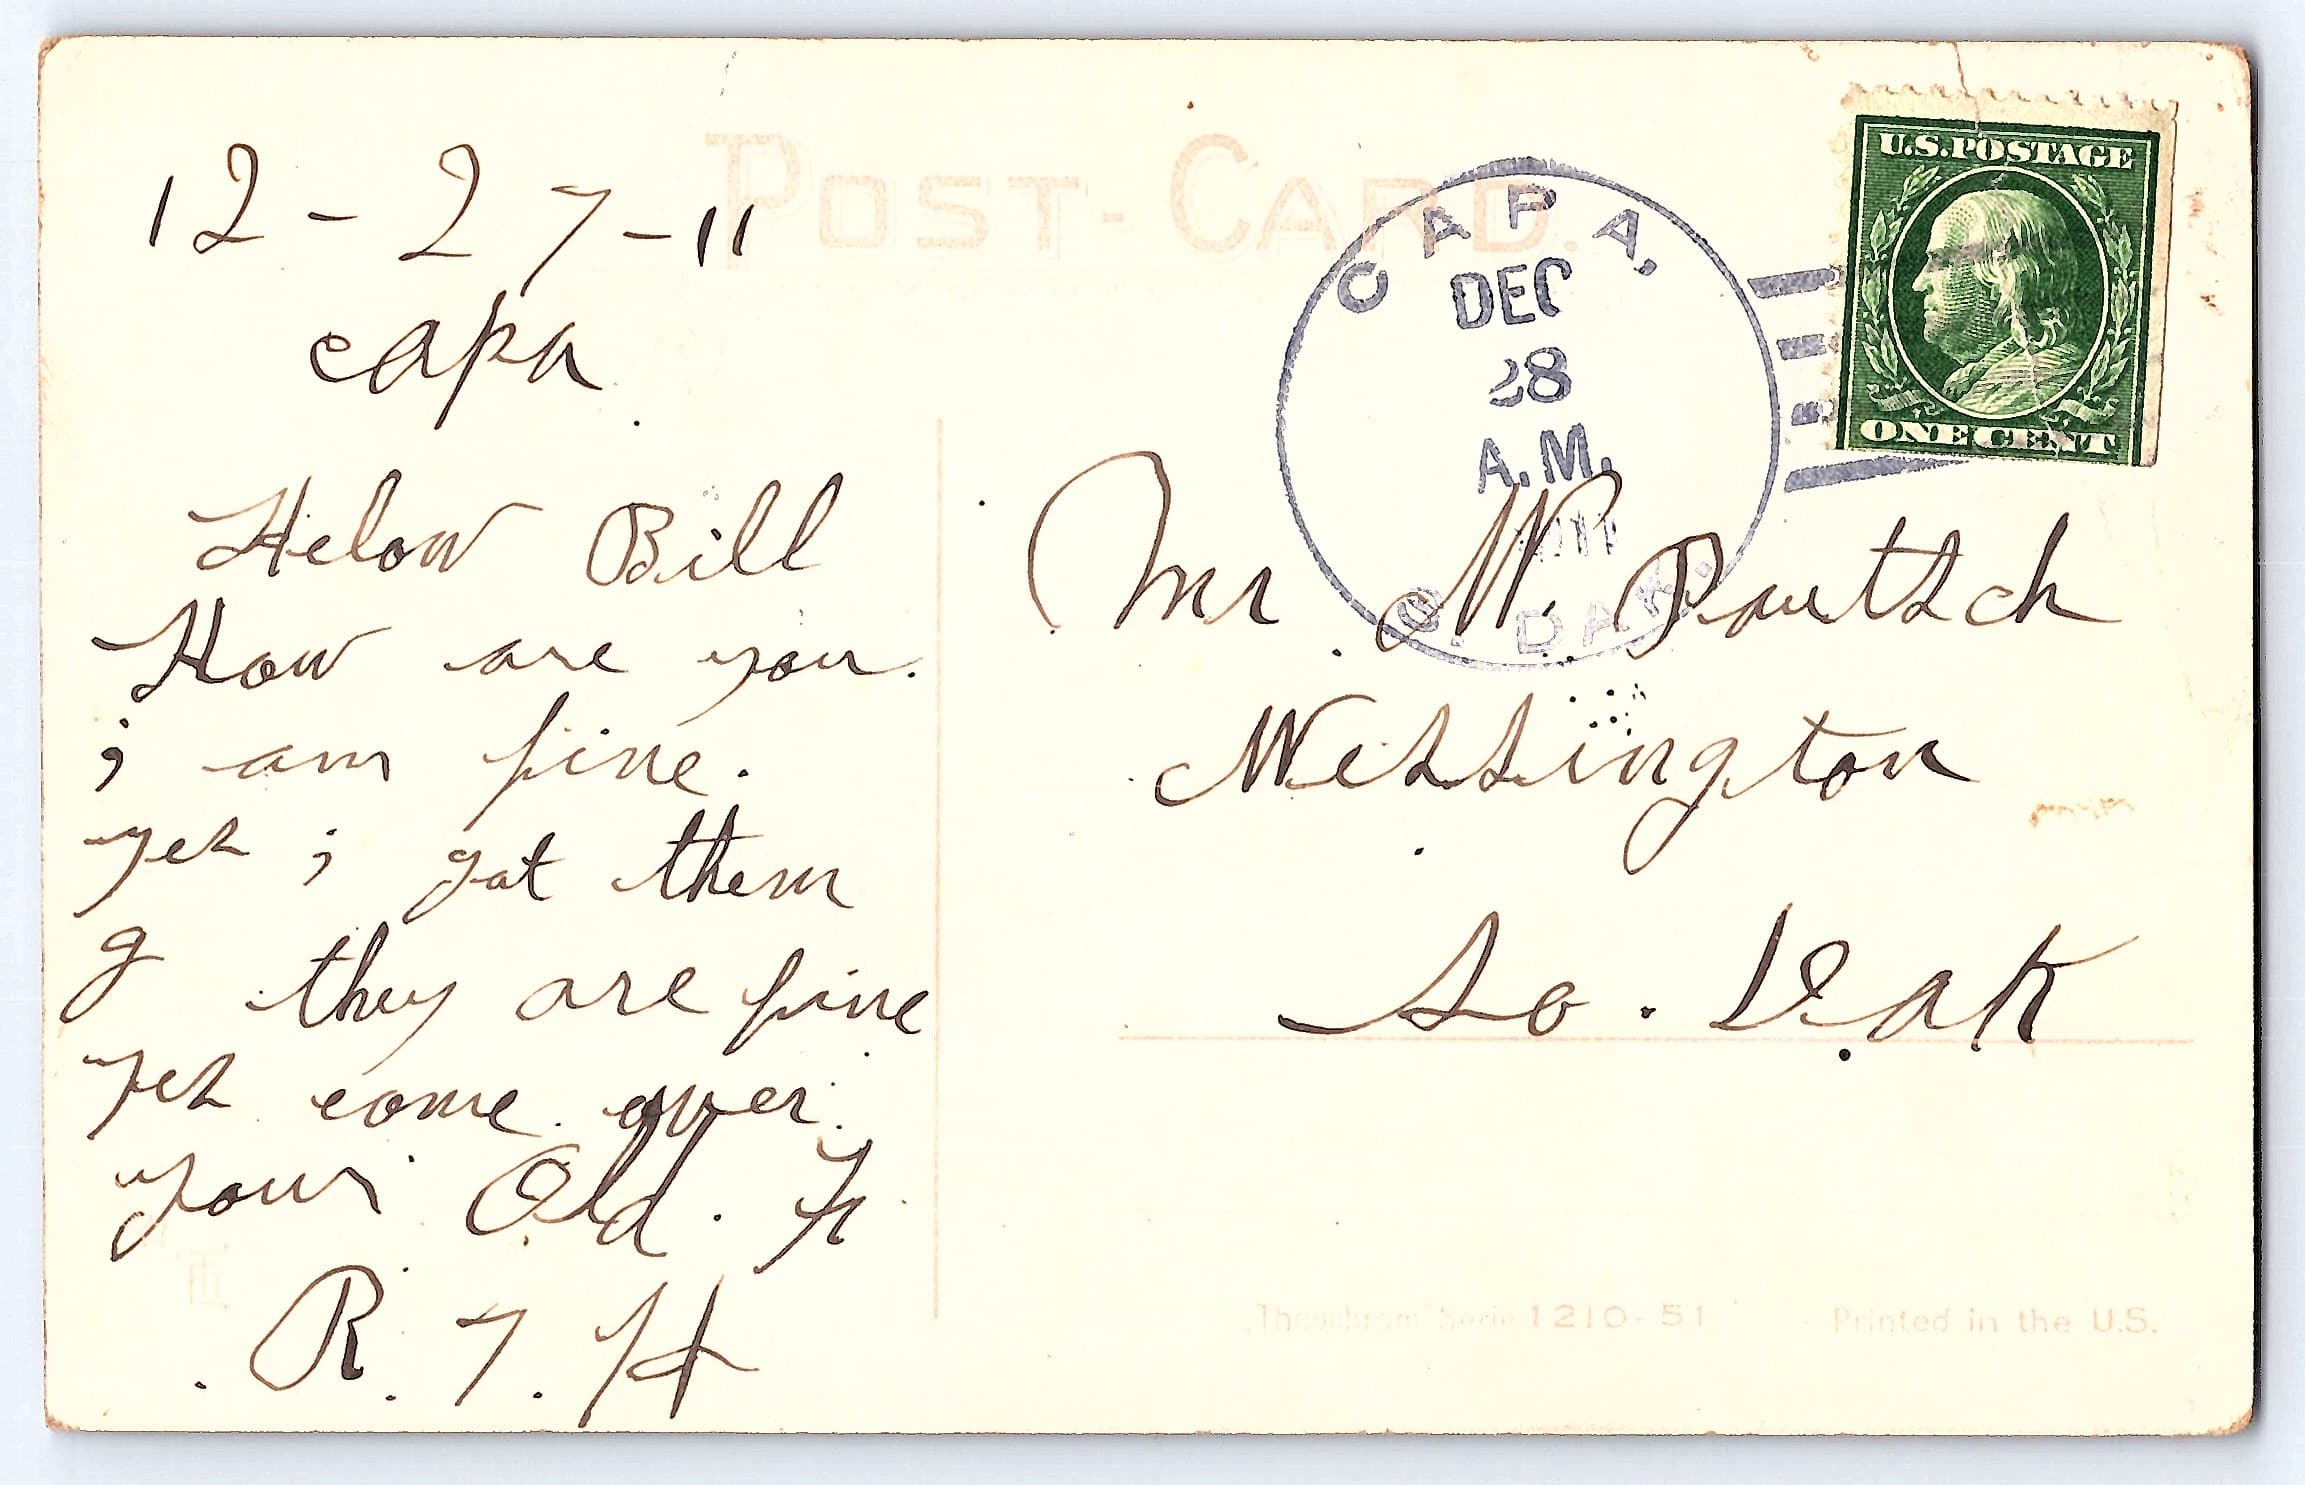 POST-CARD.
12-27-11
capa
Helow Bill
How are you.
i am fine.
yes i got them
g they are fine
yes come over
your Old. Fr
R. 7. H
U.S. POSTAGE
ONE CENT
CAPA,
DEC
28
A.M.
1911
S. DAK.
Mr W.
Wessington
So. Dak
Serie 1210-51 Printed in the U.S.